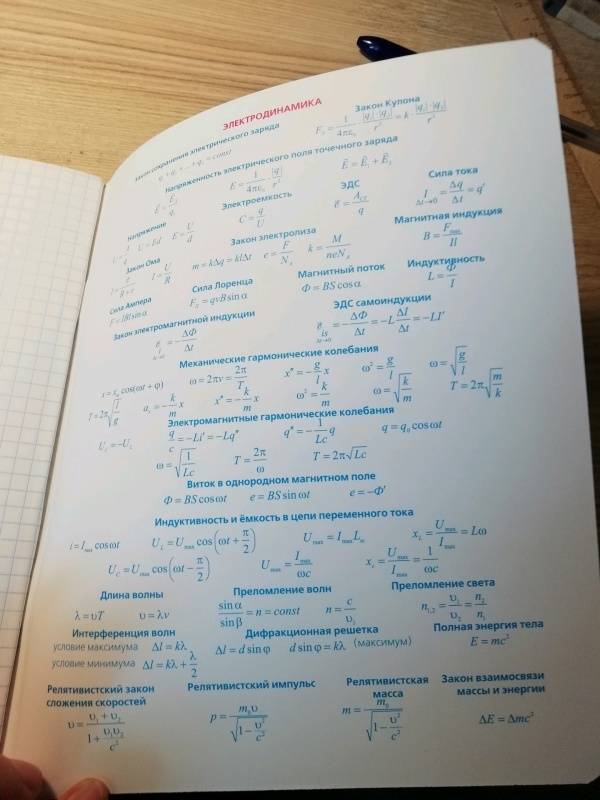 ЭЛЕКТРОДИНАМИКА
Закон сохранения электрического заряда
q₁ + q₂ + ... + qₙ = const
Закон Кулона
F₁ = 1/4πε₀ · |q₁|·|q₂|/r² = k · |q₁|·|q₂|/r²
Напряженность электрического поля точечного заряда
E = 1/4πε₀ · |q|/r²
Ē = Ē₁ + Ē₂
Напряжение
U = Ed
E = U/d
Электроемкость
C = q/U
ЭДС
Сила тока
I = Δq/Δt = q'
Δt→0
Закон Ома
I = U/R
Закон электролиза
m = kΔq = kIΔt
e = F/N
k = M/neN
Магнитная индукция
B = F/Il
Сила Ампера
F = IBl sin α
Сила Лоренца
F = qvB sin α
Магнитный поток
Φ = BS cos α
Индуктивность
L = Φ/I
Закон электромагнитной индукции
= −ΔΦ/Δt
ЭДС самоиндукции
= −ΔΦ/Δt = −L ΔI/Δt = −LI'
Механические гармонические колебания
x = xₘ cos(ωt + φ)
ω = 2πν = 2π/T
x" = −g/l x
ω² = g/l
ω = √g/l
T = 2π√l/g
aₓ = −k/m x
x" = −k/m x
ω² = k/m
ω = √k/m
T = 2π√m/k
Электромагнитные гармонические колебания
q/c = −Li' = −Lq"
q" = −1/Lc q
q = q₀ cos ωt
ω = √1/Lc
T = 2π/ω
T = 2π√Lc
Виток в однородном магнитном поле
Φ = BS cos ωt
e = BS sin ωt
e = −Φ'
Индуктивность и ёмкость в цепи переменного тока
i = Iₘₐₓ cos ωt
U_L = Uₘₐₓ cos(ωt + π/2)
Uₘₐₓ = IₘₐₓLₘ
x_L = Uₘₐₓ/Iₘₐₓ = Lω
U_C = Uₘₐₓ cos(ωt − π/2)
Uₘₐₓ = Iₘₐₓ/ωc
x_c = Uₘₐₓ/Iₘₐₓ = 1/ωc
Длина волны
λ = υT
υ = λν
Преломление волн
sin α/sin β = n = const
n = c/υ₁
Преломление света
n₁,₂ = υ₁/υ₂ = n₂/n₁
Интерференция волн
условие максимума Δl = kλ
условие минимума Δl = kλ + λ/2
Дифракционная решетка
Δl = d sin φ
d sin φ = kλ (максимум)
Полная энергия тела
E = mc²
Релятивистский закон
сложения скоростей
υ = υ₁ + υ₂/1 + υ₁υ₂/c²
Релятивистский импульс
p = m₀υ/√1 − υ²/c²
Релятивистская
масса
m = m₀/√1 − υ²/c²
Закон взаимосвязи
массы и энергии
ΔE = Δmc²